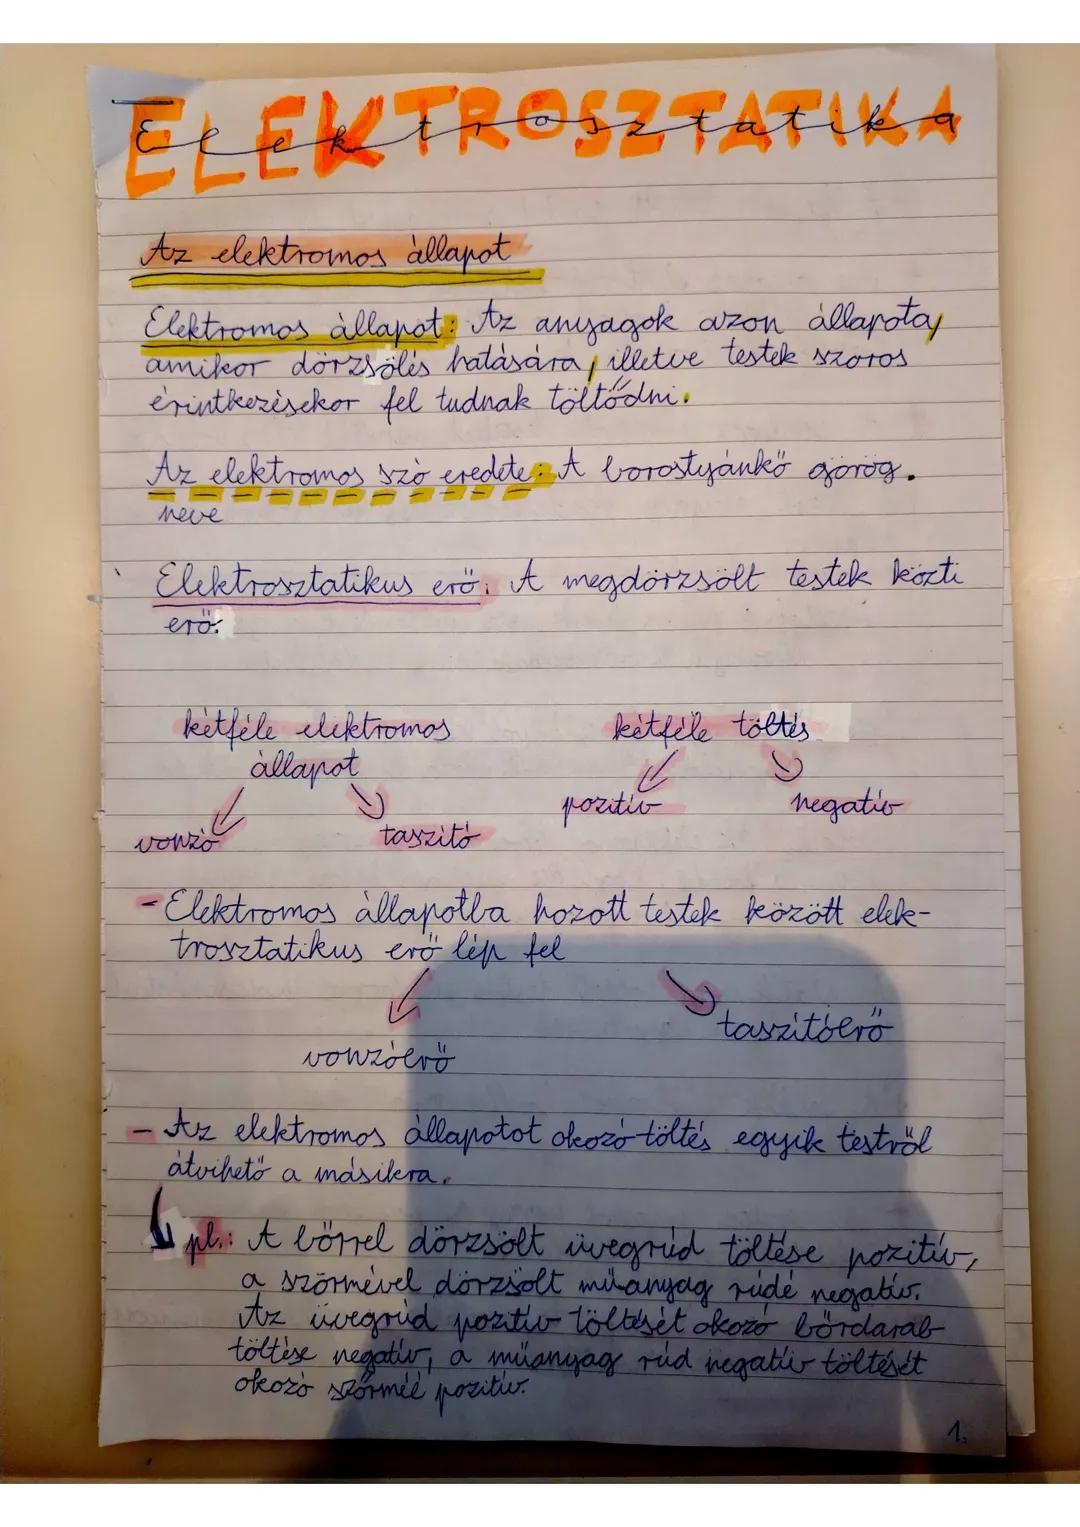 ELEKTROSZTATIKA
Elektrosztatika
Az elektromos állapot
Elektromos állapot: Az anyagok azon állapota,
amikor dörzsölés hatására, illetve testek szoros
érintkezésekor fel tudnak töltődni.
Az elektromos szó eredete: A borostyánkő görög.
neve
Elektrosztatikus erő: A megdörzsölt testek közti
erő.
kétféle elektromos kétféle töltés
állapot
pozitív negatív
vonzó taszító
- Elektromos állapotba hozott testek között elek-
trosztatikus erő lép fel
taszítóerő
vonzóerő
- Az elektromos állapotot okozó töltés egyik testről
átvihető a másikra.
pl.: A bőrrel dörzsölt üvegrúd töltése pozitív,
a szőrmével dörzsölt műanyag rúdé negatív.
Az üvegrúd pozitív töltését okozó bőrdarab
töltése negatív, a műanyag rúd negatív töltését
okozó szőrméé pozitív.
1.